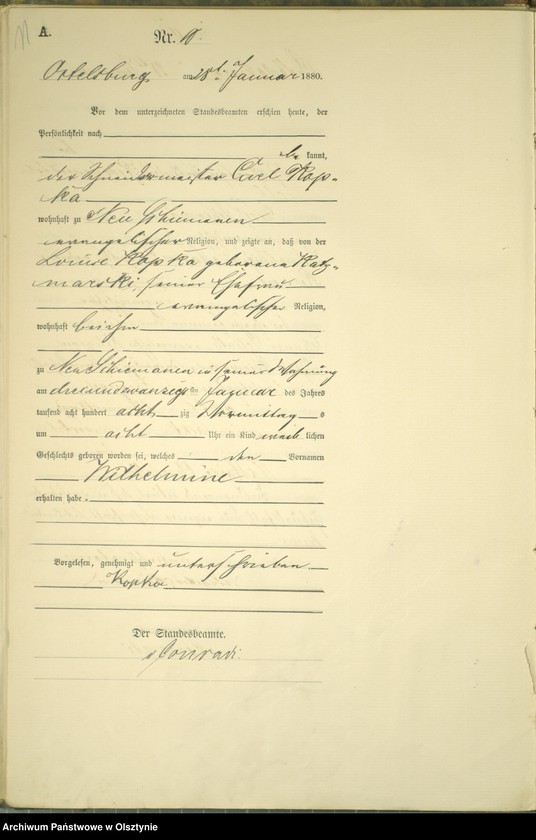 A.
Nr. 10.
Ortelsburg am 28t. Januar 1880.
Vor dem unterzeichneten Standesbeamten erschien heute, der
Persönlichkeit nach
be kannt,
der Schneidermeister Carl Kop-
ka
wohnhaft zu Neu Schiemanen
evangelischer Religion, und zeigte an, daß von der
Louise Kopka geborene Katz-
marski, seiner Ehefrau
evangelischer Religion,
wohnhaft bei ihm
zu Neu Schiemanen in seiner Wohnung
am dreiundzwanzigsten Januar des Jahres
tausend acht hundert acht zig Vormittag s
um acht Uhr ein Kind weib lichen
Geschlechts geboren worden sei, welches den Vornamen
Wilhelmine
erhalten habe.
Vorgelesen, genehmigt und unterschrieben
Kopka
Der Standesbeamte.
Conradi
Archiwum Państwowe w Olsztynie